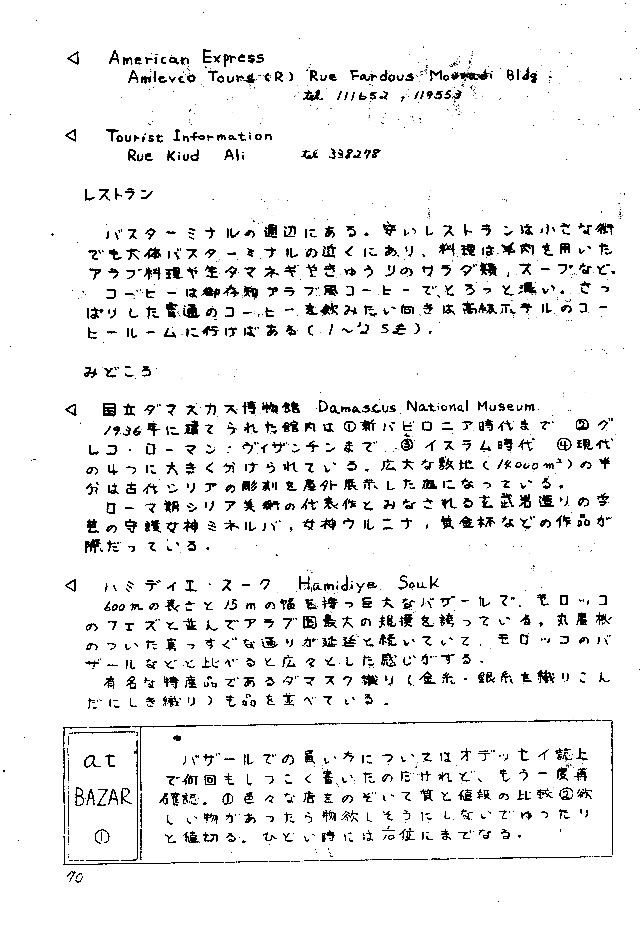 ◁ American Express
Amievco Tours (R) Rue Fardous Mouradi Bldg.
tel 111652 , 119553
◁ Tourist Information
Rue Kiud Ali tel 338278
レストラン
バスターミナルの週辺にある。安いレストランは小さな街
でも大体バスターミナルの近くにあり、料理は羊肉を用いた
アラブ料理や生タマネギやきゅうりのサラダ類，スープなど。
コーヒーは御存知アラブ風コーヒーでとろっと濃い。さっ
ぱりした普通のコーヒーを飲みたい向きは高級ホテルのコー
ヒールームに行けばある(1〜2S£)．
みどころ
◁ 国立ダマスカス博物館 Damascus National Museum
1936年に建てられた館内は①新バビロニア時代まで ②グ
レコ・ローマン・ヴィザンチンまで ③イスラム時代 ④現代
の4つに大きく分けられている。広大な敷地(14000m²)の半
分は古代シリアの彫刻を屋外展示した庭になっている。
ローマ期シリア美術の代表作とみなされる玄武岩造りの学
芸の守護女神ミネルバ，女神ウルニナ，黄金杯などの作品が
際だっている。
◁ ハミディイエ・スーク Hamidiye Souk
600mの長さと15mの幅を持つ巨大なバザールで、モロッコ
のフェズと並んでアラブ圏最大の規模を誇っている。丸屋根
のついた真っすぐな通りが延延と続いていて、モロッコのバ
ザールなどと比べると広々とした感じがする．
有名な特産品であるダマスク織り(金糸・銀糸を織りこん
だにしき織り)も品を並べている。
at
BAZAR
①
バザールでの買い方についてはオデッセイ誌上
で何回もしつこく書いたのだけれど、もう一度再
確認。①色々な店をのぞいて質と値段の比較②欲
しい物があったら物欲しそうにしないでゆったり
と値切る。ひどい時には六倍にまでなる．
70